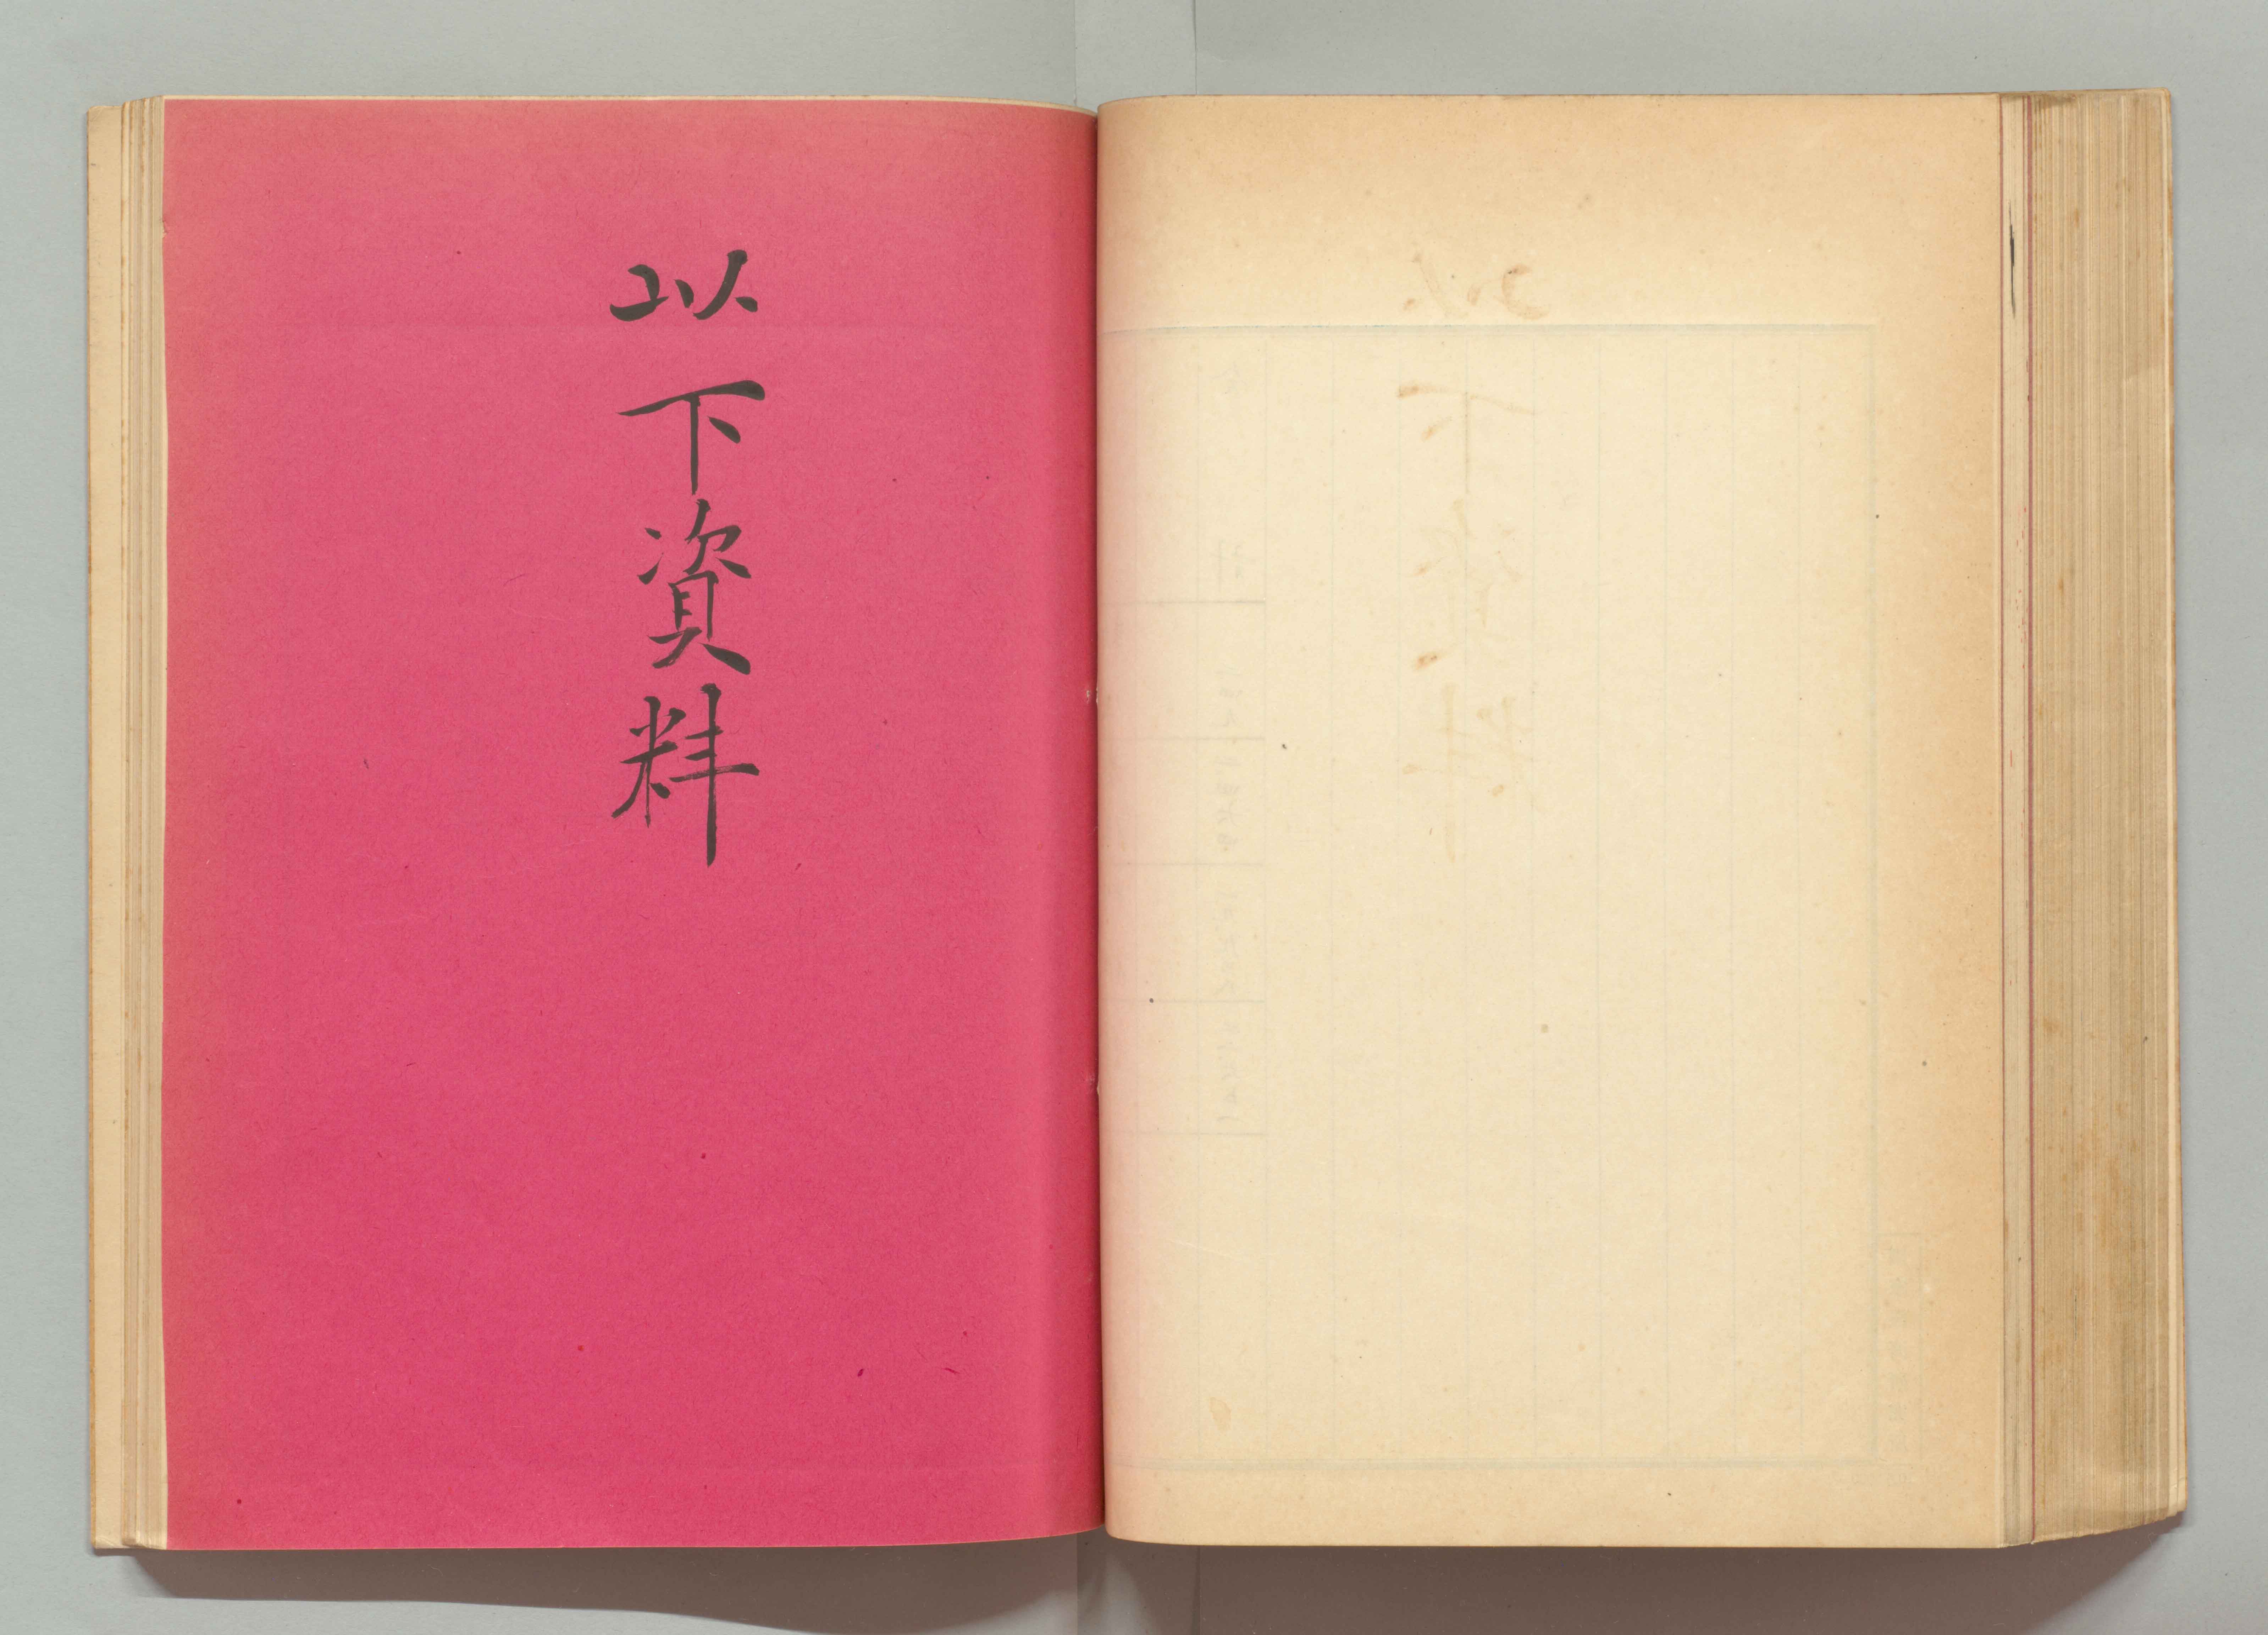 以下資料